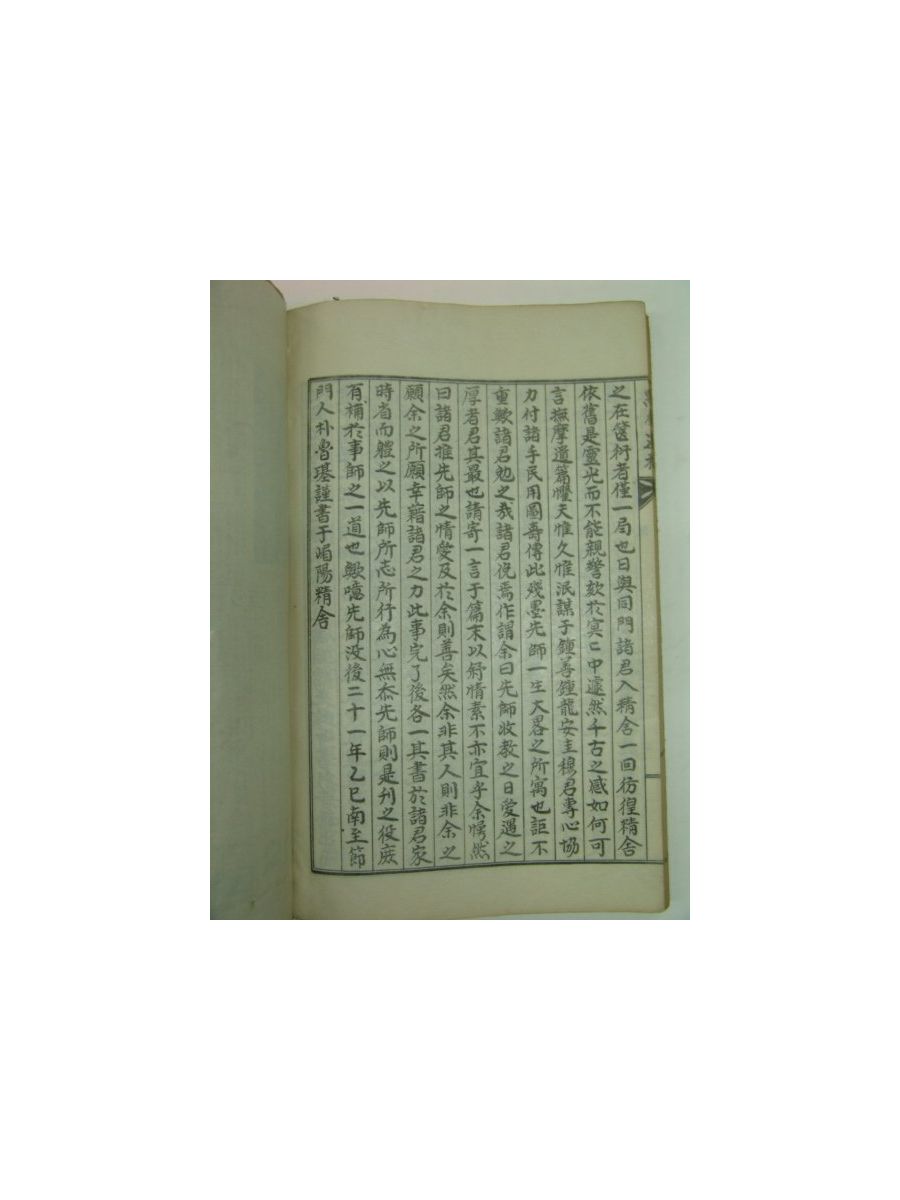 之在篋衍者僅一局也日與同門諸君入精舍一回彷徨精舍
依舊是靈光而不能親謦欬於冥〻中遽然千古之感如何可
言撫摩遺篇懼夫惟久惟泯謀于鍾善鍾龍安圭穆君專心協
力付諸手民用圖壽傳此殘墨先師一生大畧之所寓也詎不
重歟諸君勉之哉諸君俛焉作謂余曰先師收教之日愛遇之
厚者君其最也請寄一言于篇末以舒情素不亦宜乎余愕然
曰諸君推先師之情愛及於余則善矣然余非其人則非余之
願余之所願幸藉諸君之力此事完了後各一其書於諸君家
時省而軆之以先師所志所行為心無忝先師則是刊之役庶
有補於事師之一道也歟噫先師沒後二十一年乙巳南至節
門人朴魯謹書于嵋陽精舍